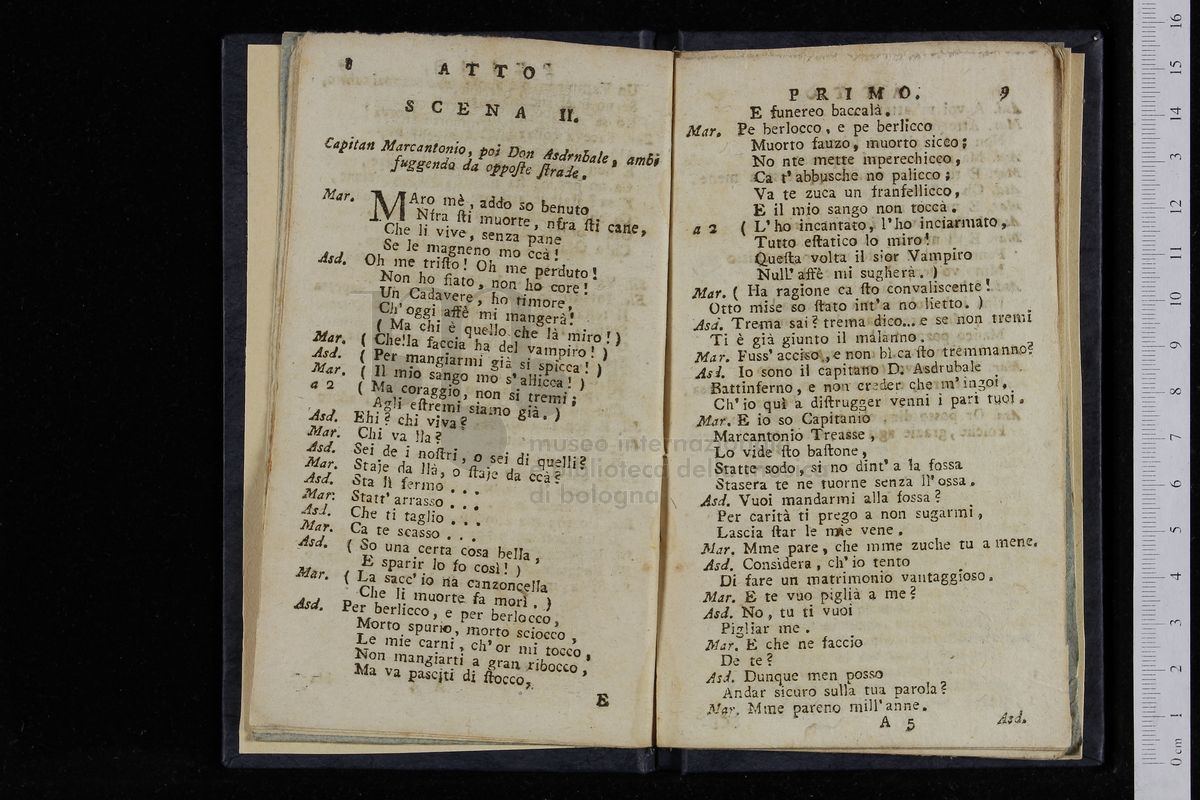 8 ATTO
SCENA II.
Capitan Marcantonio, poi Don Asdrnbale, ambi
fuggendo da oppoſte ſtrade.
Mar. MAro mè, addo so benuto
Nfra ſti muorte, nfra ſti cane,
Che li vive, senza pane
Se le magneno mo ccà!
Asd. Oh me triſto! Oh me perduto!
Non ho fiato, non ho core!
Un Cadavere, ho timore,
Ch'oggi affè mi mangerà!
( Ma chi è quello che là miro!)
Mar. ( Chella faccia ha del vampiro! )
Asd. ( Per mangiarmi già si spicca! )
Mar. ( Il mio sango mo s'allicca! )
a 2 ( Ma coraggio, non si tremi;
Agli eſtremi siamo già. )
Asd. Ehi? chi viva?
Mar. Chi va lla?
Asd. Sei de i noſtri, o sei di quelli?
Mar. Staje da llà, o ſtaje da ccà?
Asd. Sta lì fermo . . .
Mar. Statt' arrasso . . .
Asd. Che ti taglio . . .
Mar. Ca te scasso . . .
Asd. ( So una certa cosa bella,
E sparir lo fo così! )
Mar. ( La sacc' io na canzoncella
Che li muorte fa morì. )
Asd. Per berlicco, e per berlocco,
Morto spurio, morto sciocco,
Le mie carni, ch'or mi tocco,
Non mangiarti a gran ribocco,
Ma va pasciti di ſtocco,
E
PRIMO. 9
E funereo baccalà.
Mar. Pe berlocco, e pe berlicco
Muorto fauzo, muorto sicco;
No nte mette mperechicco,
Ca t'abbusche no palicco;
Va te zuca un franfellicco,
E il mio sango non tocca.
a 2 ( L'ho incantato, l'ho inciarmato,
Tutto eſtatico lo miro!
Queſta volta il sior Vampiro
Null'affè mi sugherà. )
Mar. ( Ha ragione ca ſto convaliscente!
Otto mise so ſtato int'a no lietto. )
Asd. Trema sai? trema dico... e se non tremi
Ti è già giunto il malanno.
Mar. Fuss'acciso, e non bì ca ſto tremmanno?
Asd. Io sono il capitano D. Asdrubale
Battinferno, e non creder che m'ingoi,
Ch'io quì a diſtrugger venni i pari tuoi.
Mar. E io so Capitanio
Marcantonio Treasse,
Lo vide ſto baſtone,
Statte sodo, si no dint'a la fossa
Stasera te ne tuorne senza ll'ossa.
Asd. Vuoi mandarmi alla fossa?
Per carità ti prego a non sugarmi,
Lascia ſtar le mie vene.
Mar. Mme pare, che mme zuche tu a mene.
Asd. Considera, ch'io tento
Di fare un matrimonio vantaggioso.
Mar. E te vuo piglià a me?
Asd. No, tu ti vuoi
Pigliar me.
Mar. E che ne faccio
De te?
Asd. Dunque men posso
Andar sicuro sulla tua parola?
Mar. Mme pareno mill'anne.
A 5 Asd.
museo internazionale
e biblioteca della musica
di bologna
0 cm 1 2 3 4 5 6 7 8 9 10 11 12 13 14 15 16